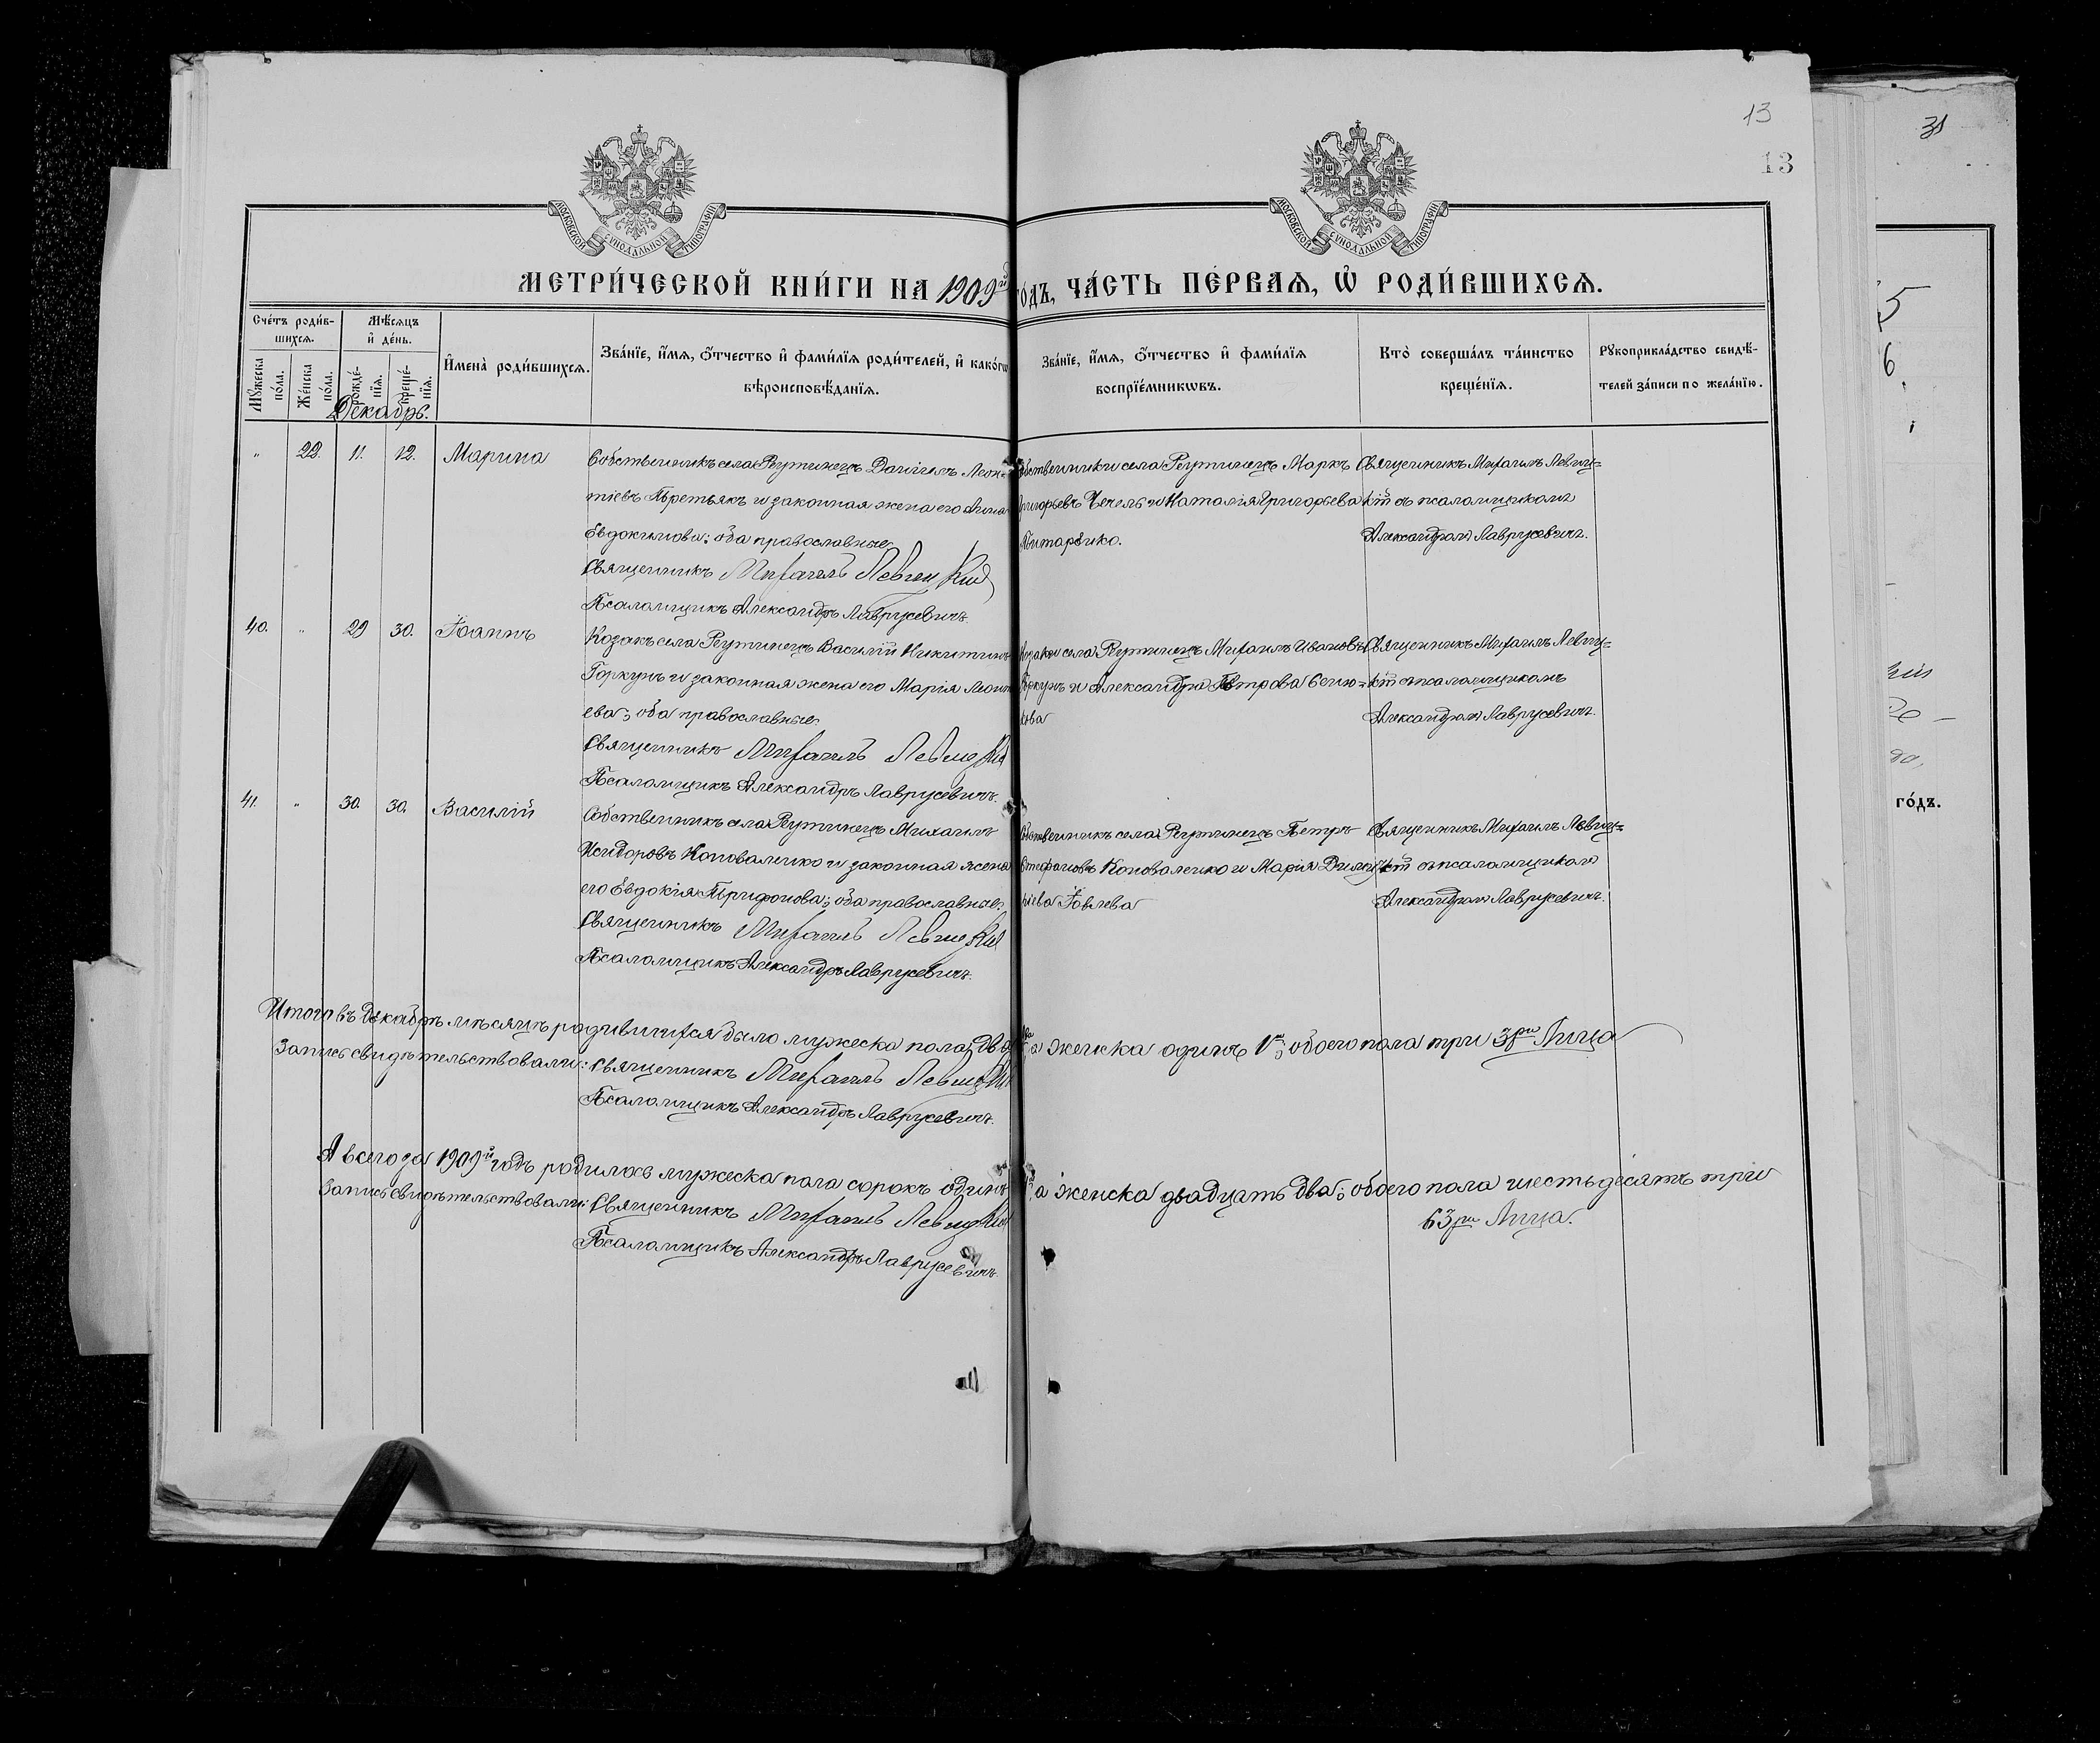 13
13
31
МОСКОВСКОЙ СѴНОДАЛЬНОЙ ТИПОГРАФІИ
МОСКОВСКОЙ СѴНОДАЛЬНОЙ ТИПОГРАФІИ
МЕТРИ́ЧЕСКОЙ КНИ́ГИ НА 1909й го́дъ, ЧА́СТЬ ПЕ́РВАѦ, Ѡ҆ РОДИ́ВШИХСѦ.
Сче́тъ роди́в-
шихсѧ.
Мѣ́сѧцъ
и҆ де́нь.
Мꙋ́жеска по́ла.
Же́нска по́ла.
рожде́-
нїѧ.
креще́-
нїѧ.
И҆мена̀ роди́вшихсѧ.
Зва́нїе, и҆́мѧ, ѻ҆́тчество и҆ фами́лїѧ роди́телей, и҆ како́гѡ
вѣроисповѣ́данїѧ.
Зва́нїе, и҆́мѧ, ѻ҆́тчество и҆ фами́лїѧ
воспрїе́мникѡвъ.
Кто̀ соверша́лъ та́инство
креще́нїѧ.
Рꙋкоприкла́дство свидѣ́-
телей за́писи по жела́нїю.
Декабрь.
" 22. 11. 12. Марина
Собственникъ села Реутинецъ Даніилъ Леон-
тіевъ Третьякъ и законная жена его Анна
Евдокимова; оба православные
Священникъ Михаилъ Левицкій
Псаломщикъ Александръ Лаврусевичъ.
села Реутинецъ Маркъ
Григорьевъ Чечель и Наталія Григорьева
Священникъ Михаилъ Левиц=
кій съ псаломщикомъ
Александромъ Лаврусевичъ.
40. " 29 30. Іоаннъ
Козакъ села Реутинецъ Василій Никитинъ
Горкунъ и законная жена его Марія
ева; оба православные
Священникъ Михаилъ Левицкій
Псаломщикъ Александръ Лаврусевичъ.
села Реутинецъ Михаилъ Ивановъ
Горкунъ и Александра Петрова
Священникъ Михаилъ Левиц=
кій съ псаломщикомъ
Александромъ Лаврусевичъ.
41. " 30. 30. Василій
Собственникъ села Реутинецъ Михаилъ
Исидоровъ Коноваленко и законная жена
его Евдокія Трифонова; оба православные.
Священникъ Михаилъ Левицкій
Псаломщикъ Александръ Лаврусевичъ.
села Реутинецъ Петръ
Стефановъ Коноваленко и Марія Димит
ріева Іовлева
Священникъ Михаилъ Левиц=
кій съ псаломщикомъ
Александромъ Лаврусевичъ.
Итого въ декабрѣ мѣсяцѣ родившихся было мужеска пола два а женска одинъ 1нъ; обоего пола три 3ри Лица
Запись свидѣтельствовали: Священникъ Михаилъ Левицкій
Псаломщикъ Александръ Лаврусевичъ.
А всего за 1909й годъ родилось мужеска пола сорокъ одинъ а женска двадцать два; обоего пола шестьдесятъ три
63ри Лица.
Запись свидѣтельствовали: Священникъ Михаилъ Левицкій
Псаломщикъ Александръ Лаврусевичъ.
5
6.
го́дъ.